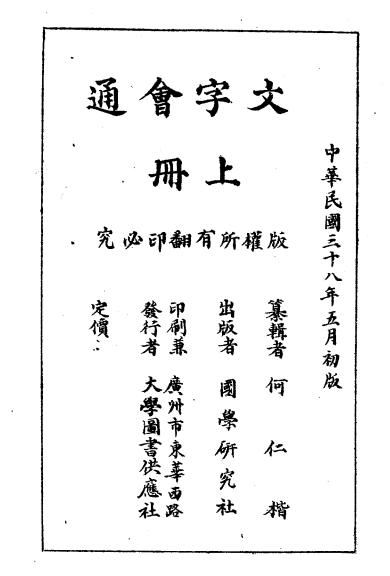 中華民國三十八年五月初版
文字會通
上冊
版權所有翻印必究
纂輯者 何仁楷
出版者 國學研究社
印刷兼 廣州市東華西路
發行者 大學圖書供應社
定價：